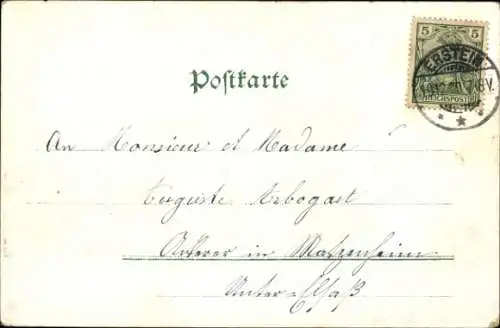 5 5
ERSTEIN
REICHSPOST
Postkarte
An Monsieur et Madame
Auguste Arbogast
Ackerer in Matzenheim
Unter-Elsaß